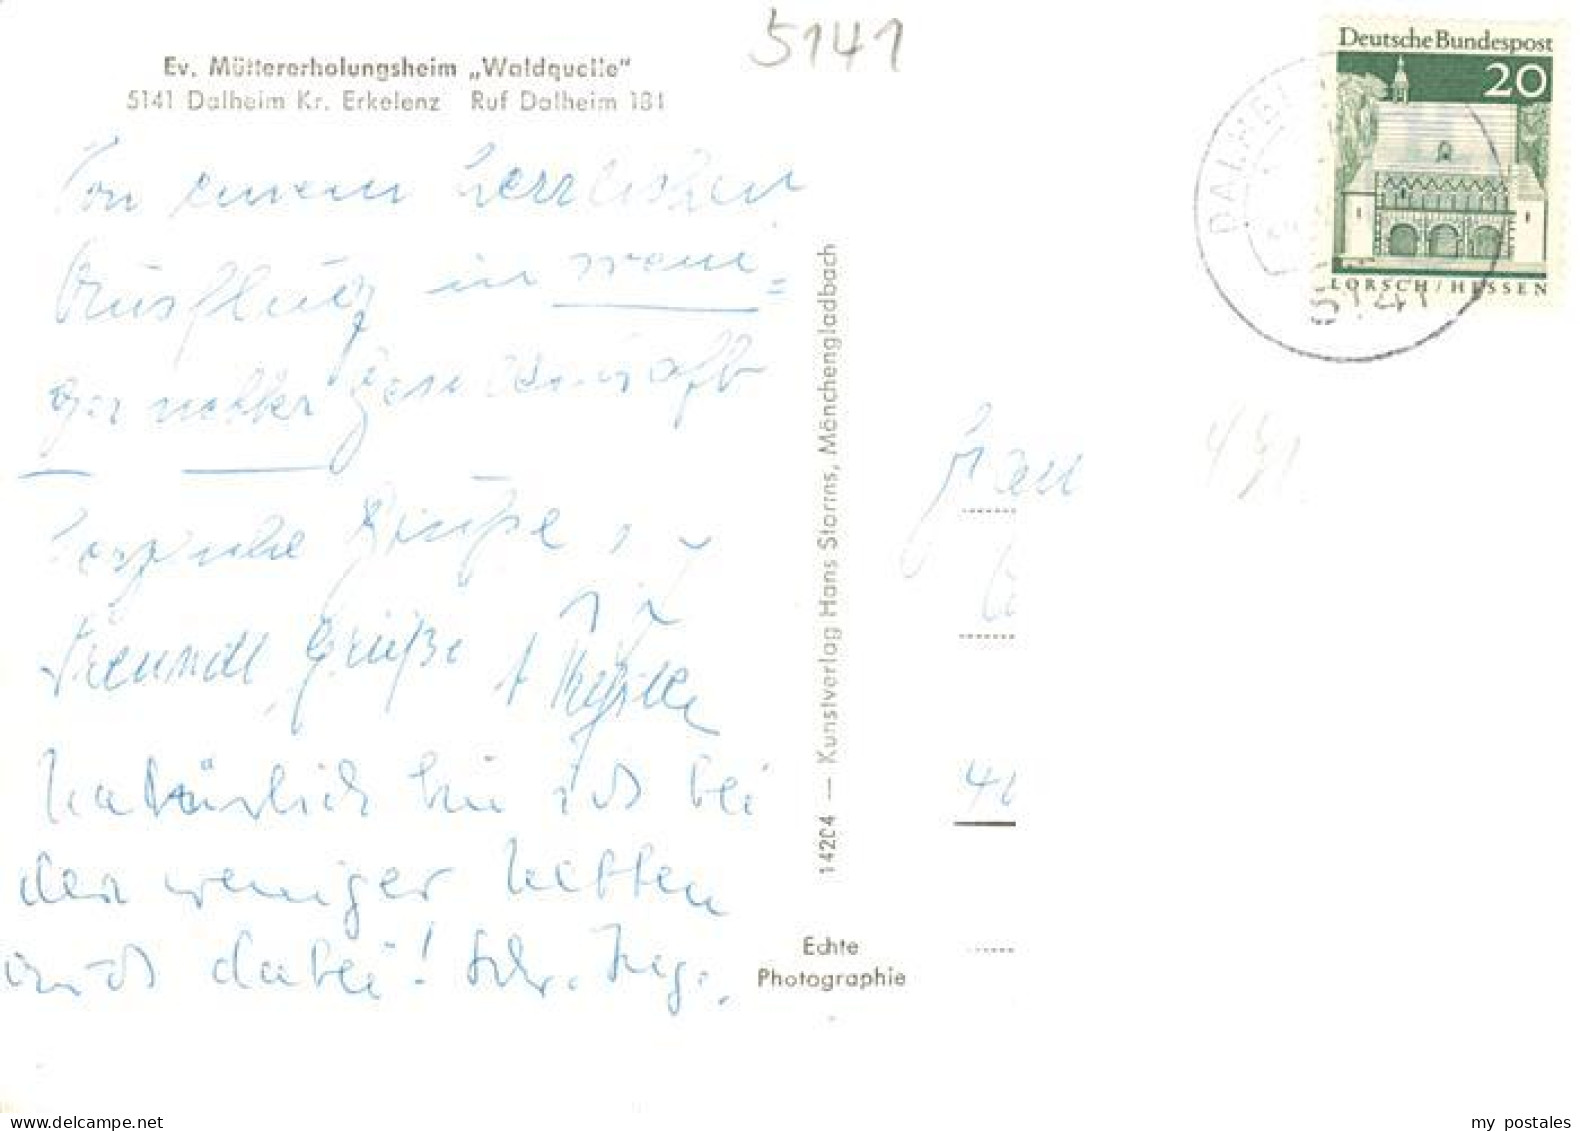 5141
Ev. Müttererholungsheim „Waldquelle"
5141 Dalheim Kr. Erkelenz Ruf Dalheim 181
Von einem herrlichen
Ausflug in weni=
ger netter Gesellschaft
herzliche Grüße
Freundl. Grüße
Natürlich bin ich bei
der weniger netten
auch dabei! Schr. Ing.
14204 — Kunstverlag Hans Storms, Mönchengladbach
Echte
Photographie
Deutsche Bundespost
20
LORSCH/HESSEN
DALHEI
5141
Frau
491
41
www.delcampe.net
my_postales